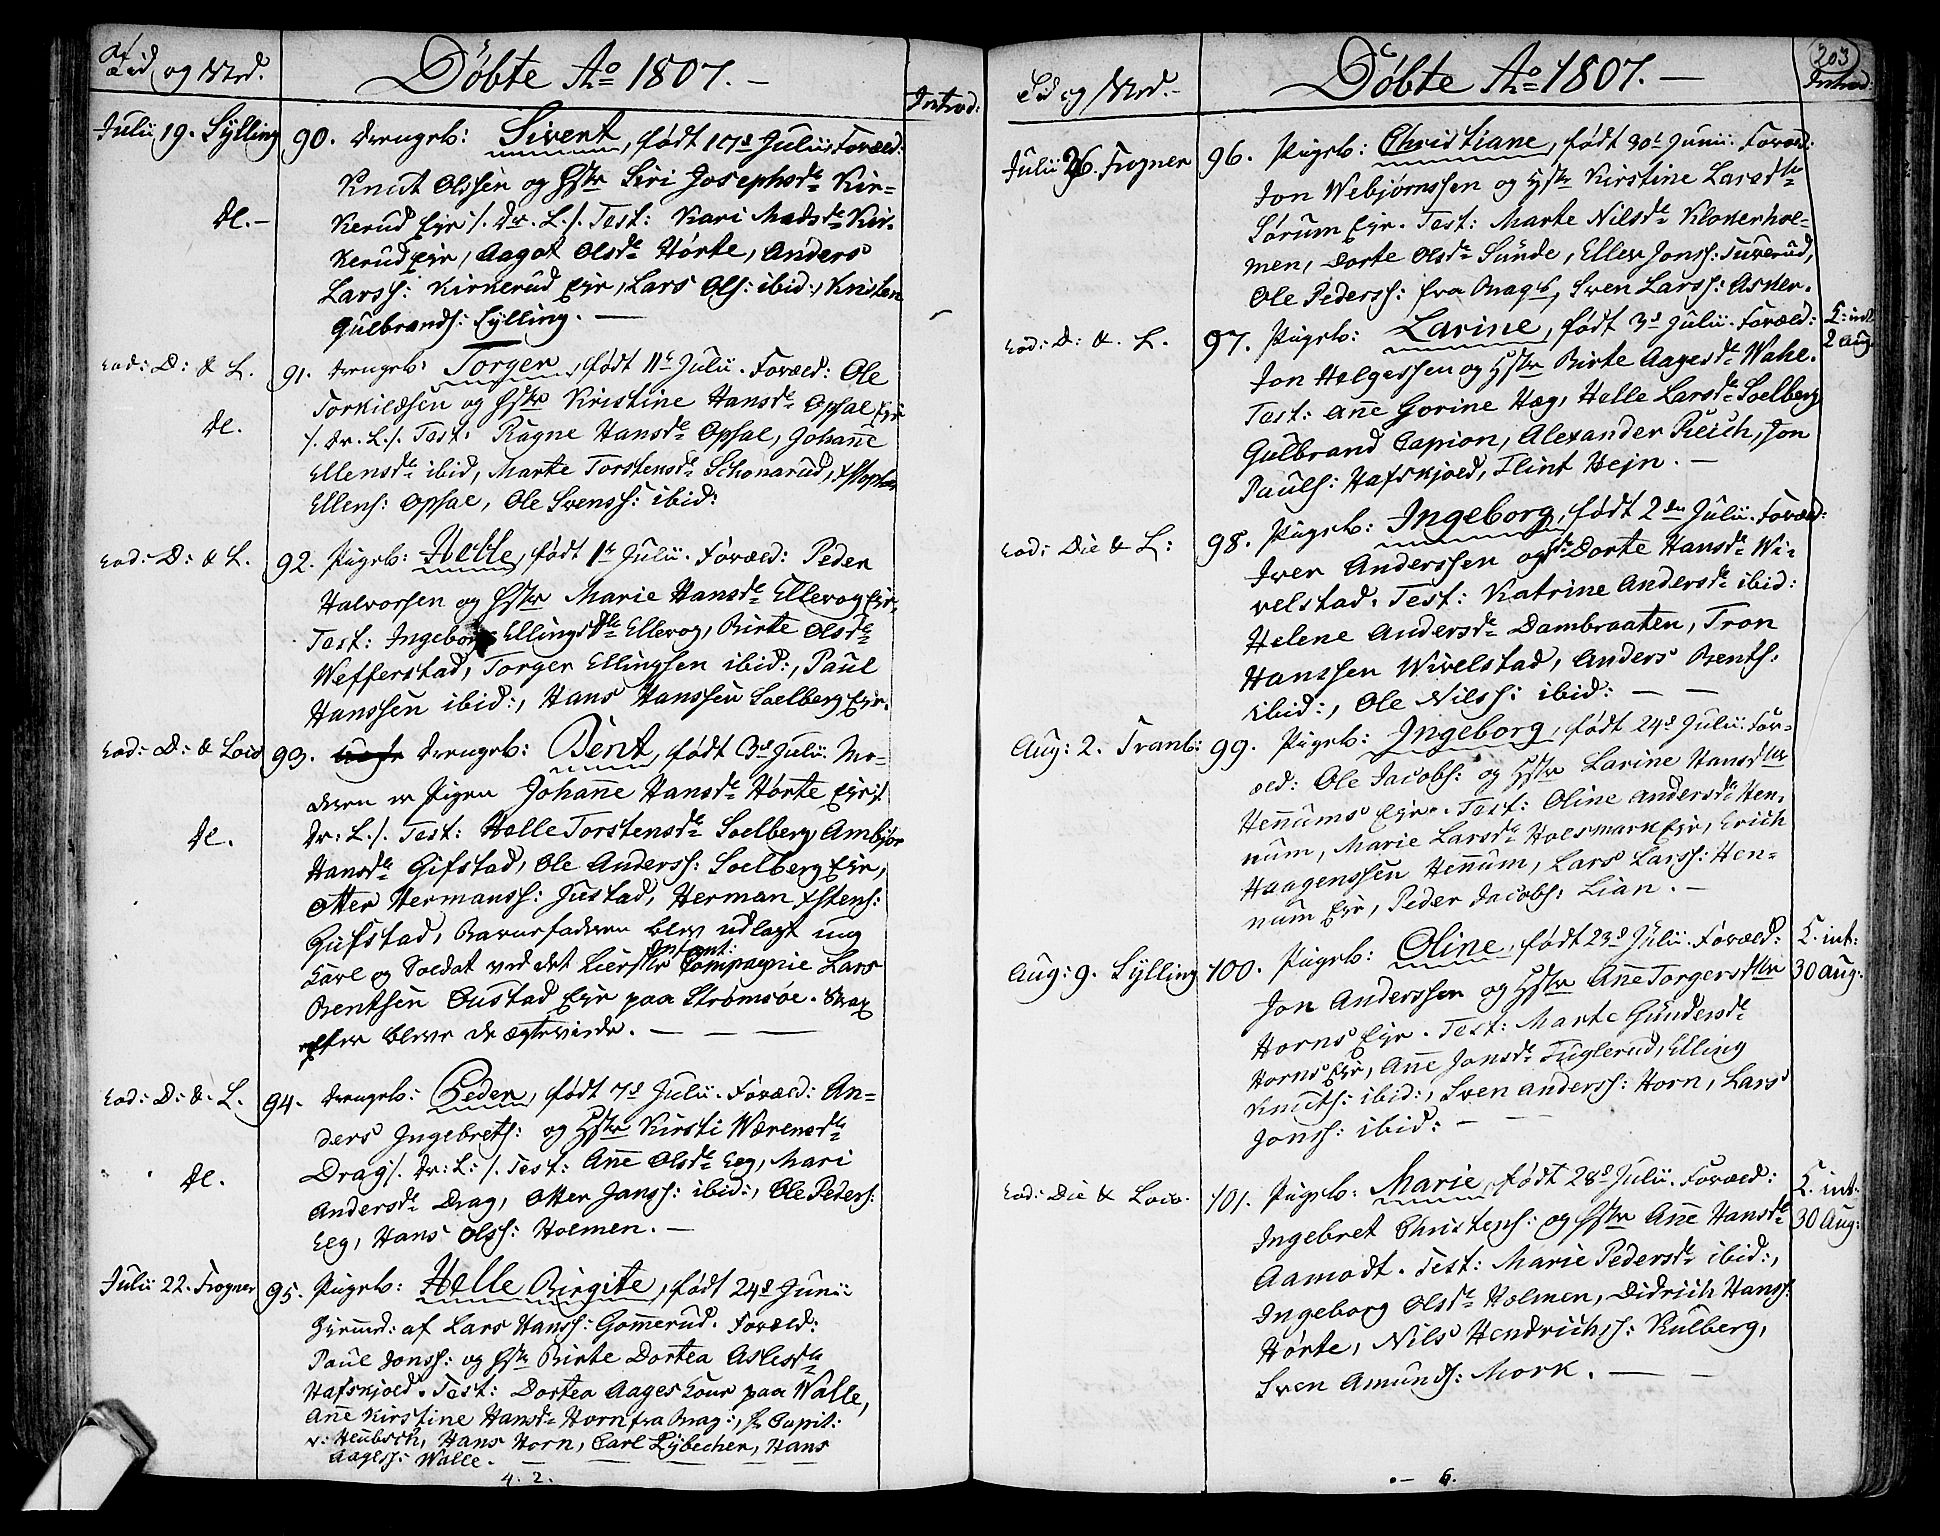 Tid og Sted.
Døbte Ao 1807. —
Introd:
Julii 19. Sylling
90. drengeb: Sivent, født 17d Julii Foræld:
Knut Olssen og Hstr Siri Josephsdr Kir-
de. —
kerud Eyr /. dr. L./. Test: Kari Madsdr Kir-
kerud Eyr, Aagot Olsdr Hörte, Anders
Larss: Kirkerud Eyr, Lars Ols: ibid:, Kristen
Gulbrands: Sylling. —
eod: D: & L.
91. drengeb: Torger, født 11t Julii. Foræld: Ole
Torkildsen og Hstr Kristine Hansdr Opsal Eyr
de.
/. dr. L./. Test: Ragne Hansdr Opsal, Johañe
Ellensdr ibid, Marte Torstensdr Schonarud,
Ellens: Opsal, Ole Svenss: ibid:
eod: D: & L.
92. Pigeb: Helle, født 1t Julii. Foræld: Peder
Halvorsen og Hstr Marie Hansdr Ellevog Eyr.
Test: Ingeborg Ellingsdr Ellevog, Birte Olsdr
Wefferstad, Torger Ellingsen ibid:, Paul
Hanssen ibid:, Hans Hanssen Soelberg Eyr.
eod: D: & Loco
93. drengeb: Bent, født 3d Julii. Mo-
deren er Pigen Johañe Hansdr Hörte Eyr /.
de.
dr: L./. Test: Helle Torstensdr Soelberg, Ambjør
Hansdr Gifstad, Ole Anderss: Soelberg Eyr,
Otter Hermanss: Justad, Herman Xstens:
Gifstad, Barnefaderen blev udlagt ung
Karl og Soldat ved det Lierske Infant: Compagnie Lars
Bentsen Oustad Eyr paa Strømsøe. Strax
efter bleve de ægteviede. — — —
eod: D: & L.
94. drengeb: Peder, født 7d Julii. Foræld: An-
ders Ingebrets: og Hstr Kirsti Wærensdr
de.
Drag /. dr: L: /. Test: Añe Olsdr Eeg, Mari
Andersdr Drag, Otter Janss: ibid:, Ole Peders:
Eeg, Hans Olss: Holmen. —
Julii 22. Frogner
95. Pigeb: Helle Birgite, født 24d Junii
hjemed: af Lars Hanss: Gom̃erud. Foræld:
Paul Jonss: og Hstr Birte Dortea Aslesdr
Hafskjold. Test: Dortea Aages Kone paa Walle,
Añe Kirstine Hansdr Horn fra Brag:, Hr Capit:
v: Heubsch, Hans Horn, Carl Lybecher, Hans
Aagess: Walle. —
4. 2.
203
Tid og Sted. —
Døbte Ao 1807. —
Introd
Julii 26. Frogner
96. Pigeb: Christiane, født 30t Junii. Foræld:
Jon Webjørnssen og Hstr Kirstine Larsdtr
Sørum Eyr. Test: Marte Nilsdr Klokerhol-
men, Dorte Olsdr Sunde, Ellen Jonss: Tuverud,
Ole Pederss: fra Brags, Sven Larss: Asker.
eod: D: & L.
97. Pigeb: Larine, født 3d Julii. Foræld:
K: int:
2 Aug.
Jon Helgessen og Hstr Birte Aagesdr Wahl.
Test: Añe Gorine Hæg, Helle Larsdr Soelberg
Gulbrand Capion, Alexander Reich, Jon
Pauls: Hafskjold, Flint Hejn. —
eod: Die & L:
98. Pigeb: Ingeborg, født 2den Julii. Foræld:
Iver Anderssen og Hstr Dorte Hansdr Wi-
velstad. Test: Katrine Andersdr ibid:
Helene Andersdr Dambraaten, Tron
Hanssen Wivelstad, Anders Bents:
ibid:, Ole Nilss: ibid: — —
Aug: 2. Tranb:
99. Pigeb: Ingeborg, født 24d Julii. For-
æld: Ole Jacobs: og Hstr Larine Hansdtr
Heñums Eyr. Test: Oline Andersdr Hen-
num, Marie Larsdr Holsmark Eyr, Erich
Haagenssen Heñum, Lars Larss: Hen-
num Eyr, Peder Jacobs: Lian. —
Aug: 9. Sylling
100. Pigeb: Oline, født 23d Julii. Foræld:
K. int:
30 Aug:
Jon Anderssen og Hstr Añe Torgersdtr
Horns Eyr. Test: Marte Gundersdr
Horns Eyr, Añe Jonsdr Fuglerud, Elling
Knuts: ibid:, Sven Anderss: Horn, Lars
Jonss: ibid: — —
eod: Die & Loco.
101. Pigeb: Marie, født 28d Julii. Foræld:
K. int:
30 Aug:
Ingebret Christens: og Hstr Añe Hansdr
Aamodt. Test: Marie Pedersdr ibid:,
Ingeborg Olsdr Holmen, Didrich Hanss:
Hörte, Nils Hendrichss: Kulberg,
Sven Amunds: Mork. — —
6.